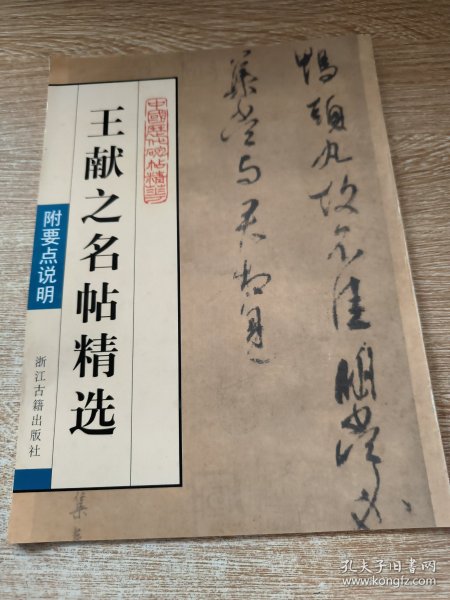 鸭头丸故不佳明当必
集当与君相见
中國歷代碑帖精華
王献之名帖精选
附要点说明
浙江古籍出版社
集
孔夫子旧书网
www.kongfz.com